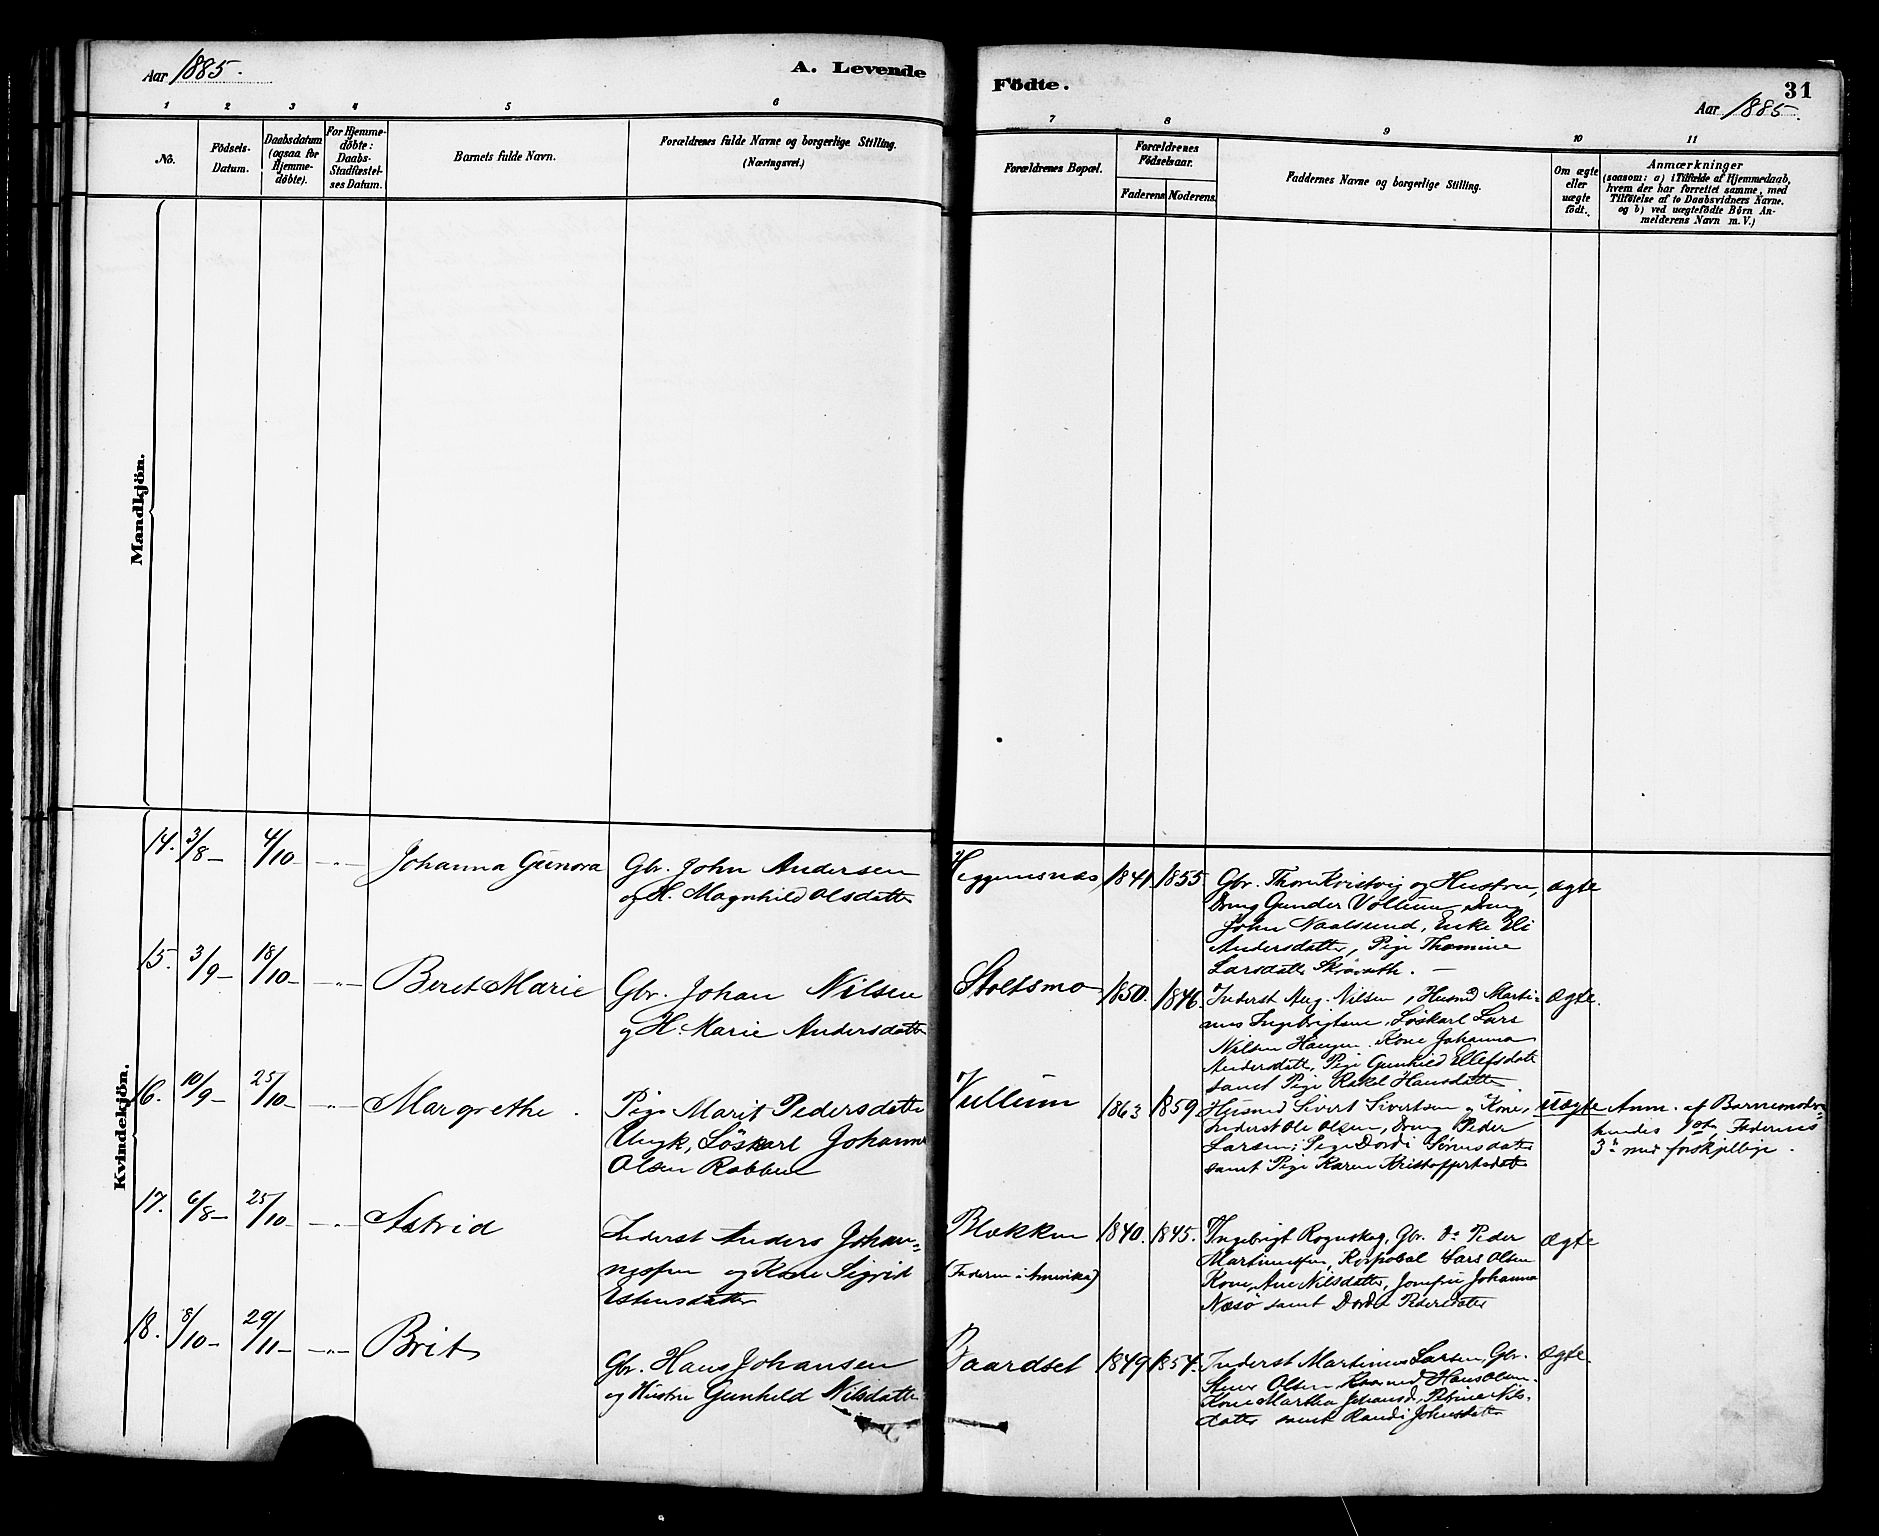 Aar 1885.
A. Levende
Födte.
31
Aar 1885.
1 2 3 4 5 6
7 8 9 10 11
No.
Födsels-
Datum.
Daabsdatum
(ogsaa for
Hjemme-
döbte).
For Hjemme-
döbte:
Daabs-
Stadfæstel-
ses Datum.
Barnets fulde Navn.
Forældrenes fulde Navne og borgerlige Stilling.
(Næringsvei.)
Forældrenes Bopæl.
Forældrenes
Födselsaar.
Faderens Moderens.
Faddernes Navne og borgerlige Stilling.
Om ægte
eller
uægte
födt.
Anmærkninger
(saasom: a) i Tilfælde af Hjemmedaab,
hvem der har forrettet samme, med
Tilföielse af to Daabsvidners Navne.
og b) ved uægtefödte Börn An-
melderens Navn m. V.)
Mandkjön.
Kvindekjön.
14. 3/8- 4/10- -"-
Johanna Gunora
Gbr. John Andersen
og H. Magnhild Olsdatter
1841 1855
Gbr. Thore Kvistvig og Hustru,
Dreng Gunder Vollum, Dreng
John Naalsund, Enke Eli
Andersdatter, Pige Thomine
Larsdatter
ægte
15. 3/9- 18/10- -"-
Beret Marie
Gbr. Johan Nilsen
og H. Marie Andersdatter
Stoltsmo
1850. 1846.
Inderst Aug. Nilsen, Husmd Marti-
nus Ingebrigtsen, Löskarl Lars
Nilsen Haugen. Kone Johanna
Andersdatter, Pige Gunhild Ellefsdatter
samt Pige Rakel Hansdatter
ægte.
16. 10/9- 25/10- -"-
Margrethe.
Pige Marit Pedersdatter
Löskarl Johannes
Olsen Robben
Vullum
1863 1859
Husmd Sivert Sivertsen og Kone,
Inderst Ole Olsen, Dreng Peder
Larsen; Pige Dordi
samt Pige Karen Kristoffersdatter
uægte
Anm. af Barnemoder
hendes 1ste, Faderens
3de med forskjellige.
17. 6/8- 25/10- -"-
Astrid
Inderst Anders Johan-
nessen og Kone Sigrid
Estensdatter
Blekken
(Faderen i Amerika)
1840. 1845.
Ingebrigt Rognskag, Gbr. Do Peder
Martinussen, Korporal Lars Olsen
Kone, Ane Nilsdatter, Jomfru Johanna
Næsö samt Dordi Pedersdatter
ægte
18. 8/10- 29/11- -"-
Brit
Gbr. Hans Johansen
og Hustru Gunhild Nilsdatter
Baardset
1849 1854.
Inderst Martinus Larsen, Gbr.
Olsen, Hans Olsen
Kone Martha Johansd, Nils-
datter samt Randi Johnsdatter
ægte.